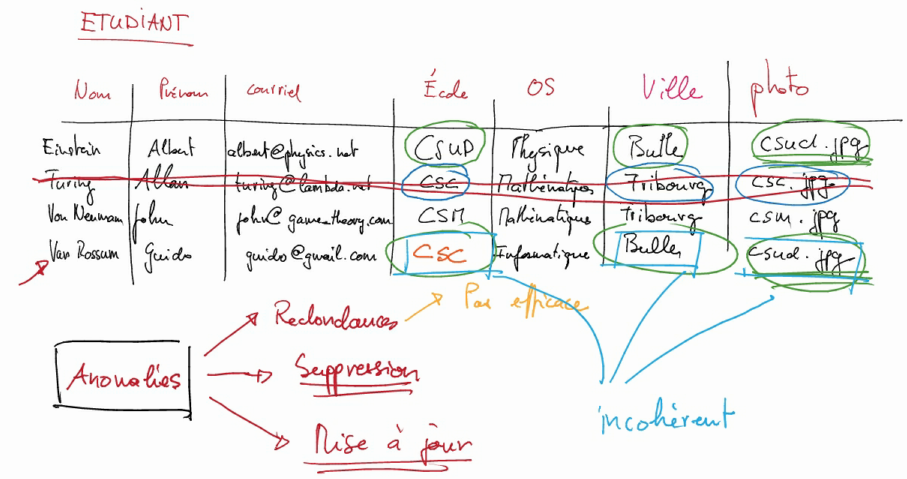 ETUDIANT
Nom Prénom courriel École OS Ville photo
Einstein Albert albert@physics.net CSUD Physique Bulle csud.jpg
Turing Allan turing@lambda.net CSC Mathématiques Fribourg csc.jpg
Von Neumann John john@game_theory.com CSM Mathématiques Fribourg csm.jpg
Van Rossum Guido guido@gmail.com CSC Informatique Bulle csud.jpg
Redondances Pas efficace
Anomalies Suppression
incohérent
Mise à jour